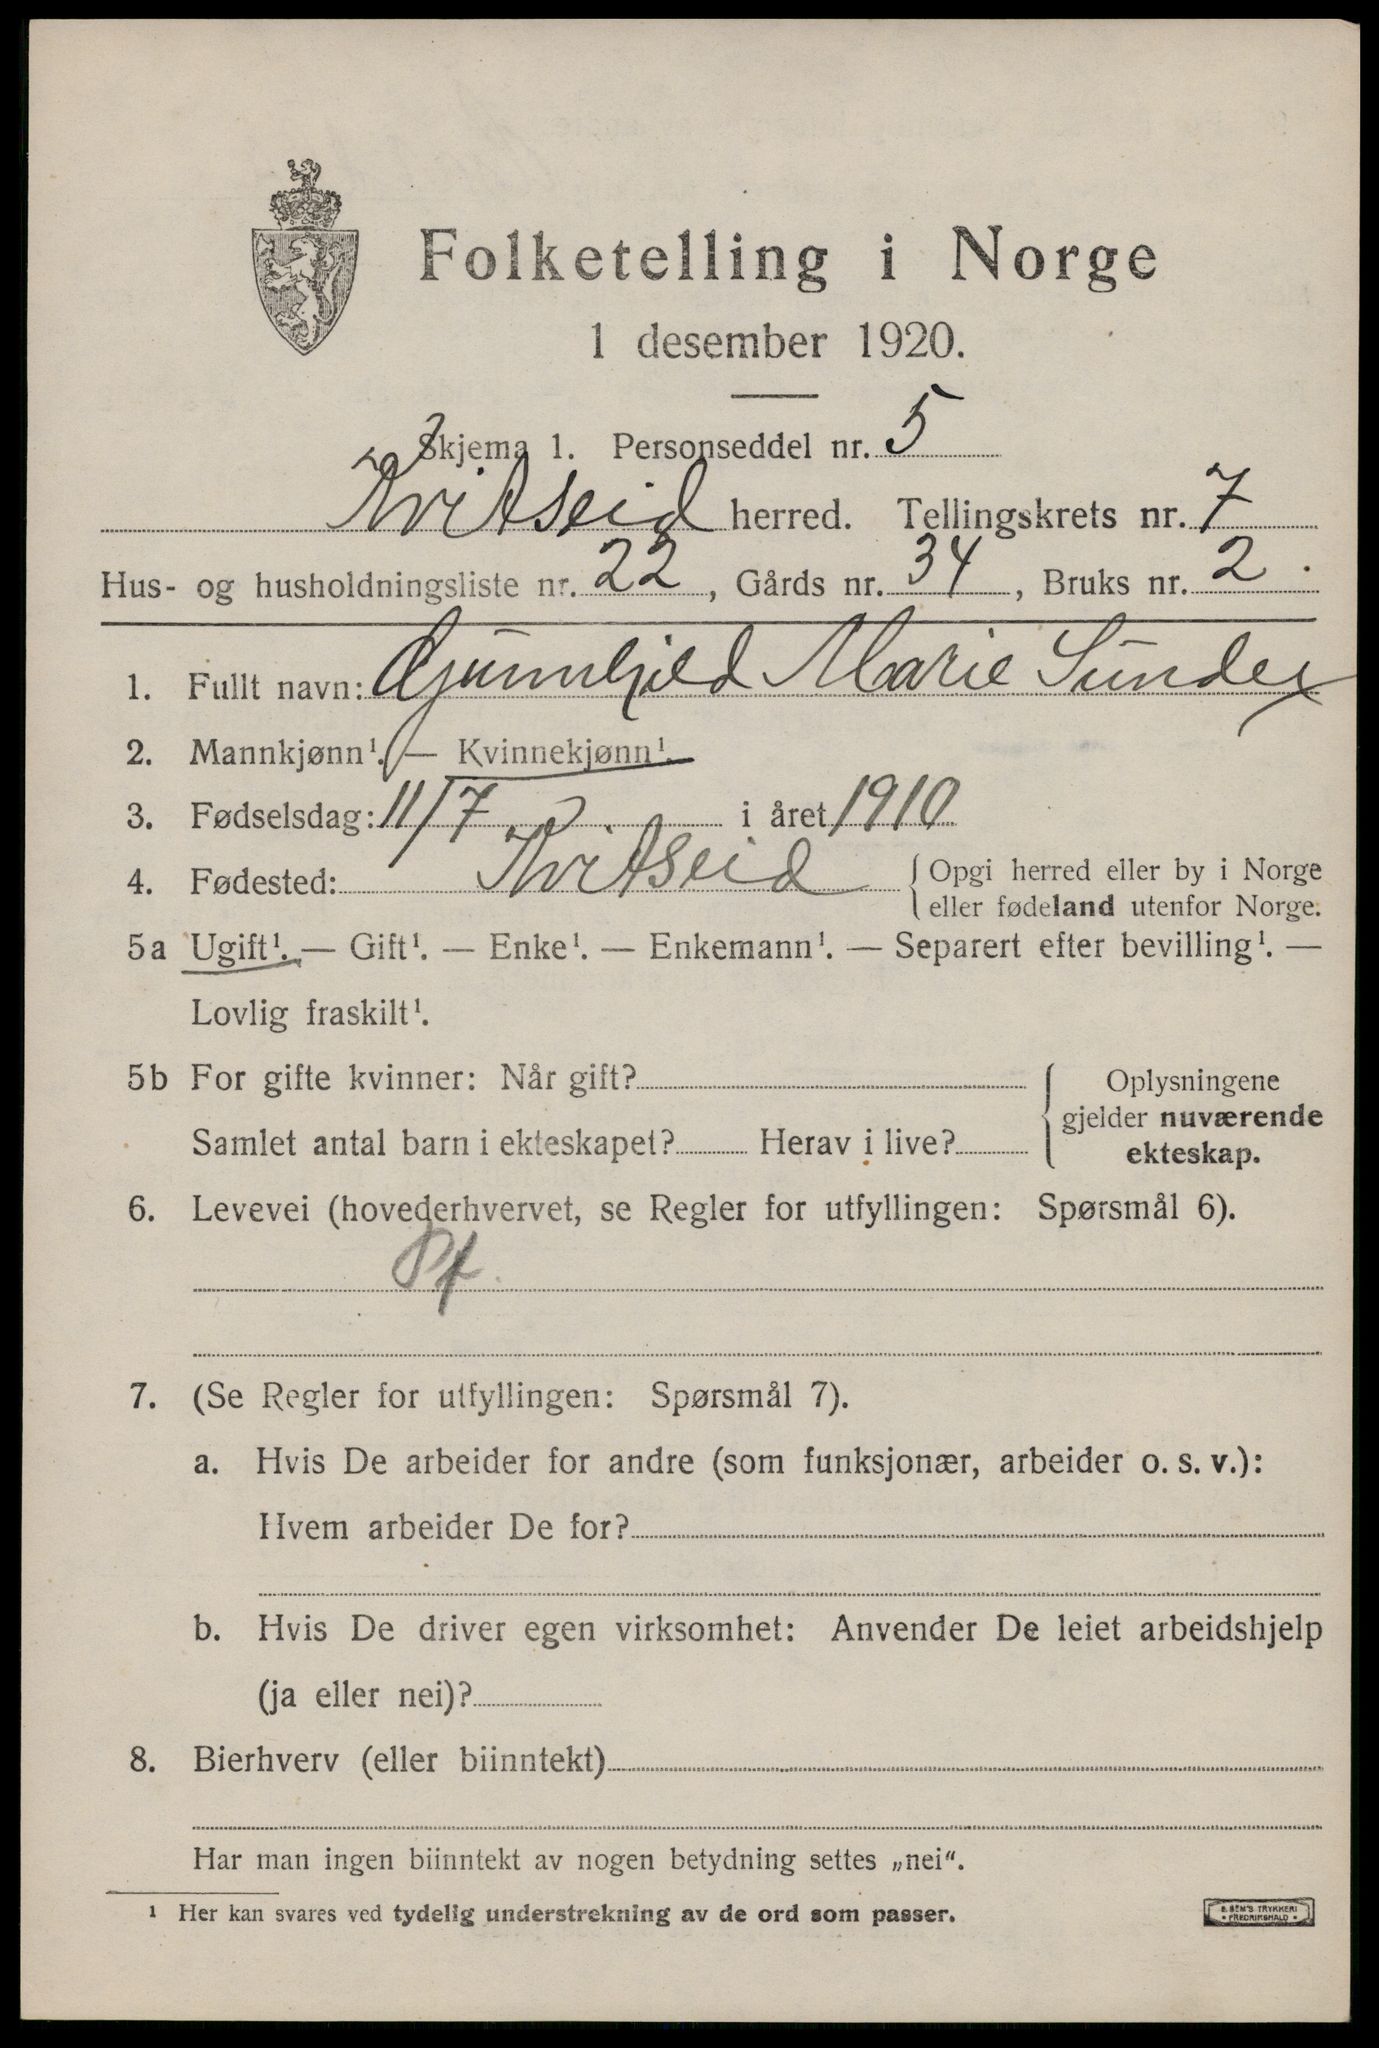 Folketelling i Norge
1 desember 1920.
Skjema 1. Personseddel nr. 5
Kvitseid herred. Tellingskrets nr. 7
Hus- og husholdningsliste nr. 22, Gårds nr. 34, Bruks nr. 2.
1. Fullt navn: Gunnhild Marie
2. Mannkjønn¹. — Kvinnekjønn¹.
3. Fødselsdag: 11/7 i året 1910
4. Fødested: Kvitseid {Opgi herred eller by i Norge
eller fødeland utenfor Norge.
5a Ugift¹. — Gift¹. — Enke¹. — Enkemann¹. — Separert efter bevilling¹. —
Lovlig fraskilt¹.
5b For gifte kvinner: Når gift? Oplysningene
gjelder nuværende
Samlet antal barn i ekteskapet? Herav i live? ekteskap.
6. Levevei (hovederhvervet, se Regler for utfyllingen: Spørsmål 6).
7. (Se Regler for utfyllingen: Spørsmål 7).
a. Hvis De arbeider for andre (som funksjonær, arbeider o. s. v.):
Hvem arbeider De for?
b. Hvis De driver egen virksomhet: Anvender De leiet arbeidshjelp
(ja eller nei)?
8. Bierhverv (eller biinntekt)
Har man ingen biinntekt av nogen betydning settes „nei“.
¹ Her kan svares ved tydelig understrekning av de ord som passer.
E. SEM'S TRYKKERI
FREDRIKSHALD